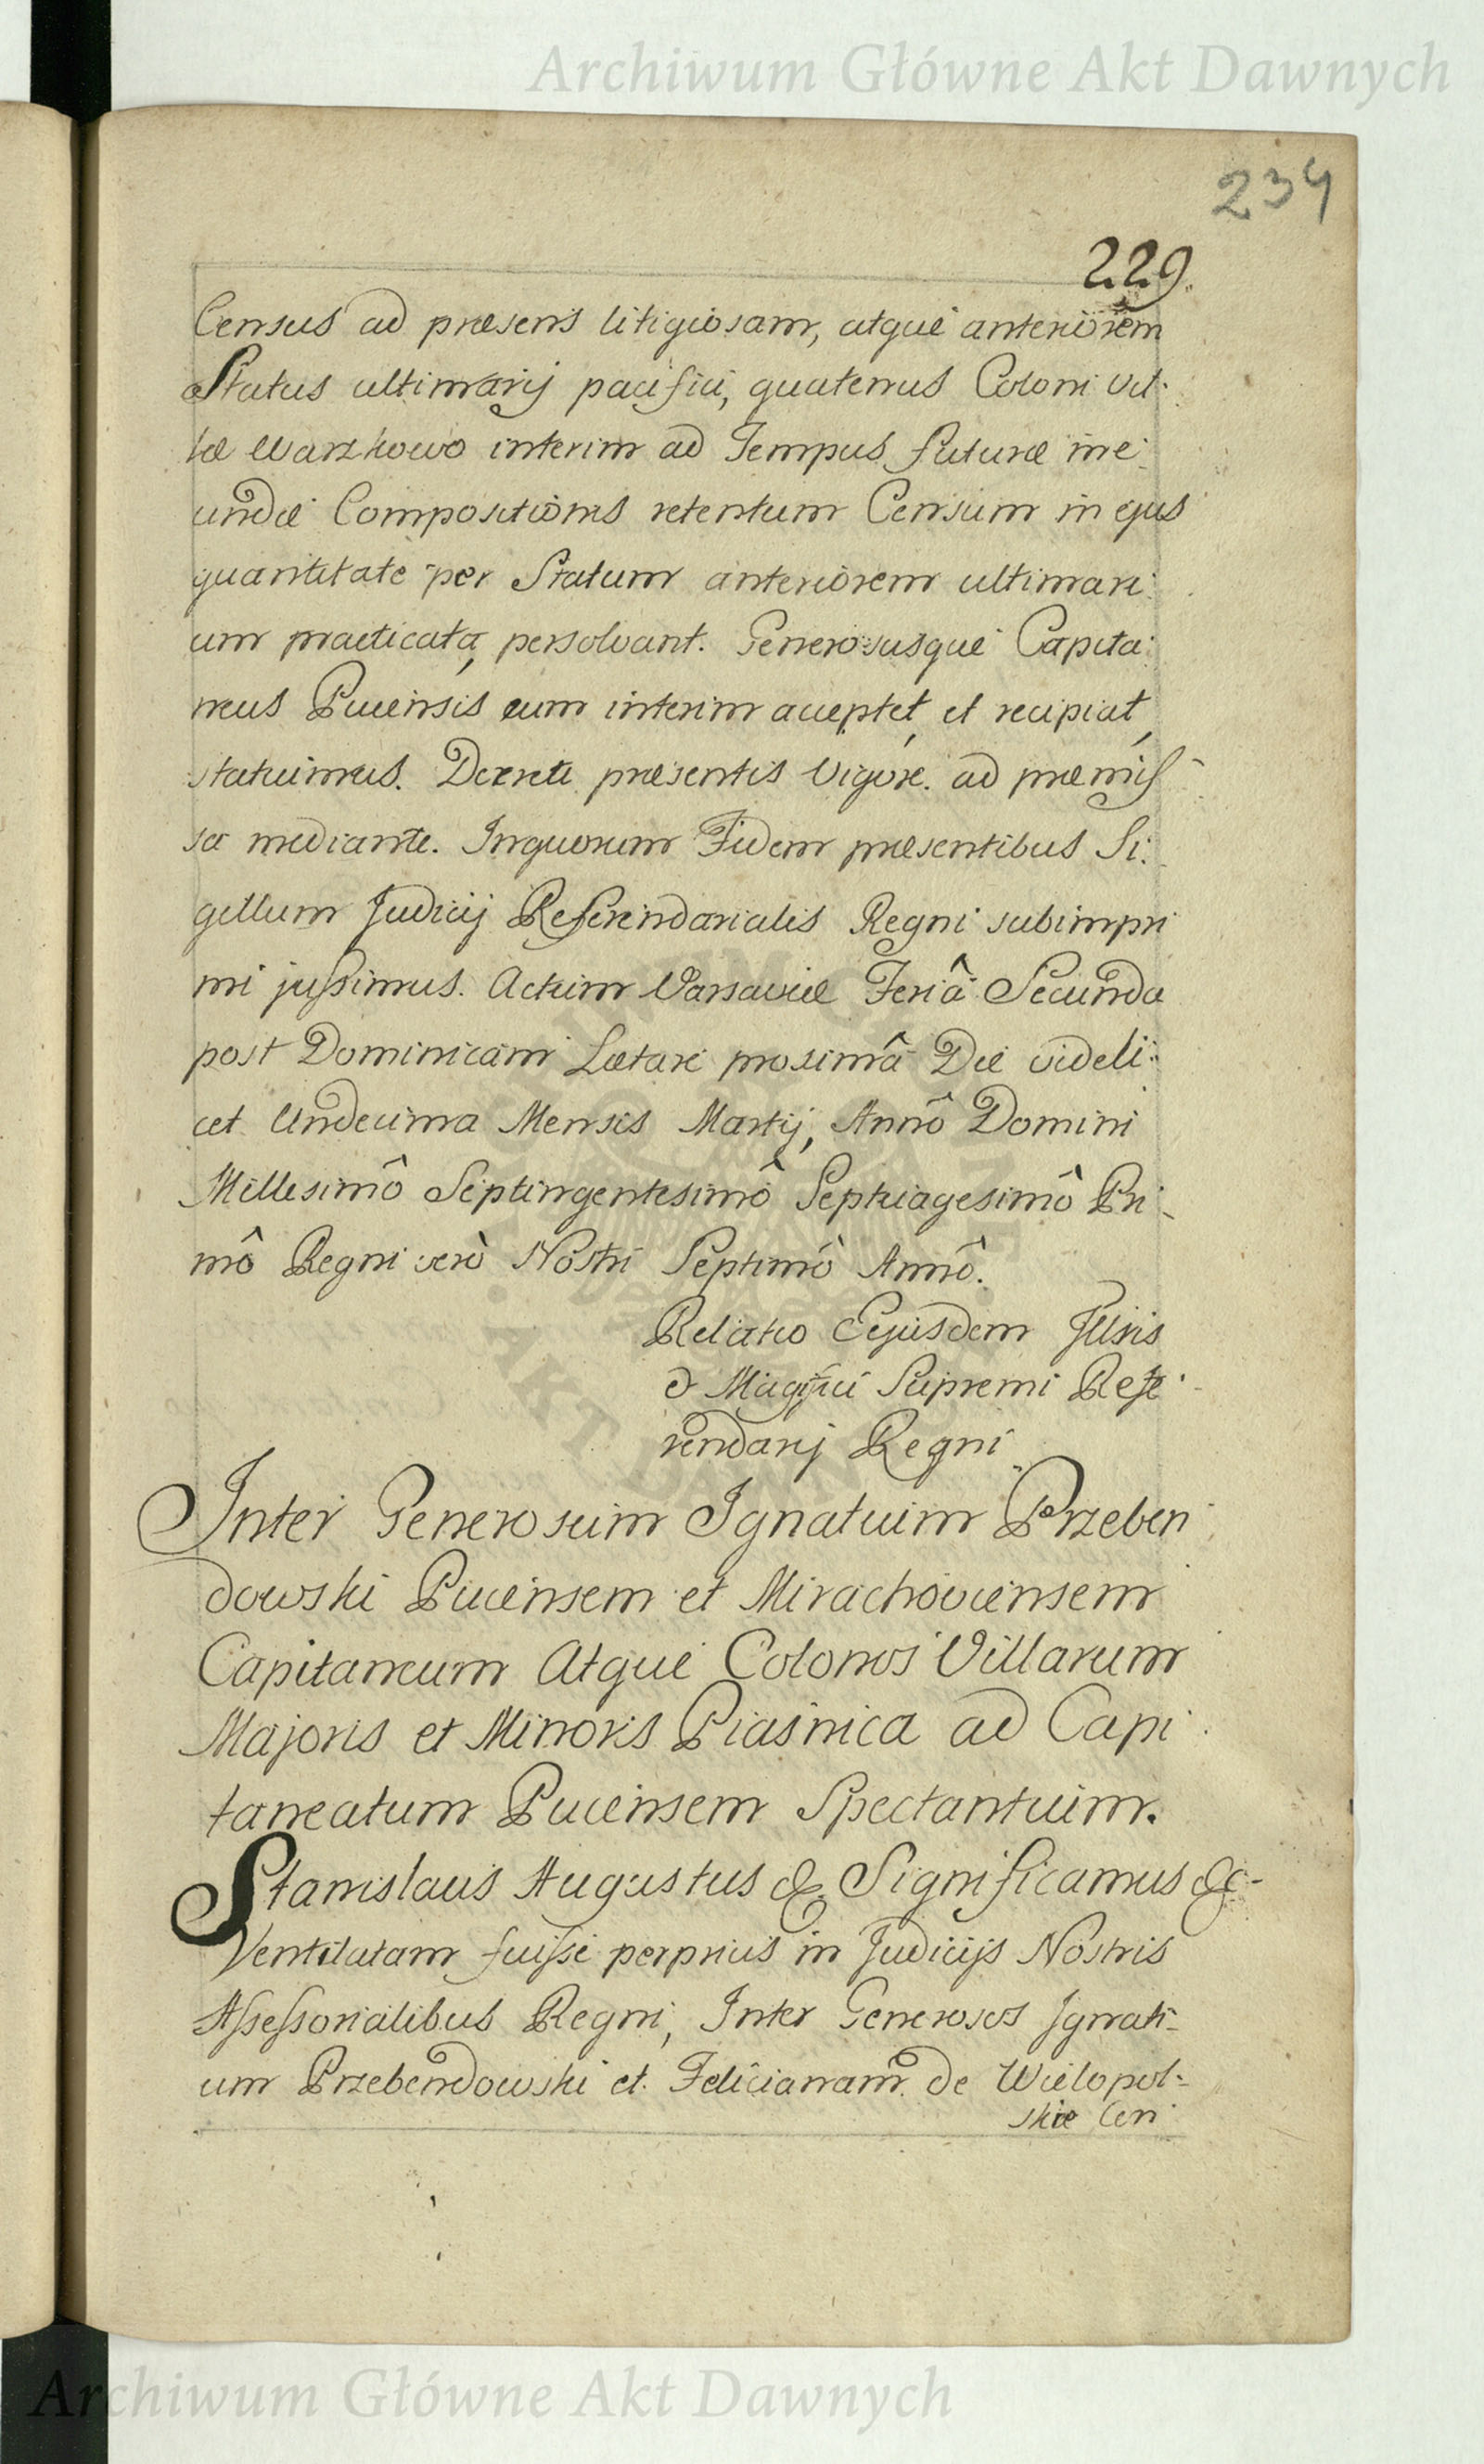 Archiwum Główne Akt Dawnych
234
229.
Census ad præsens litigiosam, atque anteriorem
Status ultimarij pacifici, quatenus Coloni Vil-
læ Warzkowo interim ad Tempus futuræ ine-
undæ Compositionis retentum Censum in ejus
quantitate per Statum anteriorem ultimari-
um practicata, persolvant. Generosusque Capita-
neus Pucensis eum interim acceptet, et recipiat,
statuimus. Decreti præsentis Vigore. ad præmis-
sa mediante. Inquorum Fidem præsentibus Si-
gillum Judicij Referendarialis Regni subimpri
mi jussimus. Actum Varsaviæ Feriâ Secunda
post Dominicam Lætare proximâ Die videli-
cet Undecima Mensis Martij, Annô Domini
Millesimô Septingentesimô Septuagesimô Pri-
mô Regni verò Nostri Septimô Annô.
Relatio Ejusdem Illris
& Magfici Supremi Refe-
rendarij Regni
Inter Generosum Ignatium Przeben
dowski Pucensem et Mirachoviensem
Capitaneum Atque Colonos Villarum
Majoris et Minoris Piasnica ad Capi
taneatum Pucensem Spectantium.
Stanislaus Augustus &. Significamus &c-
Ventilatam fuisse perprius in Judicijs Nostris
Assessorialibus Regni, Inter Generosos Ignati-
um Przebendowski et Felicianam de Wielopol-
skie Cen
Archiwum Główne Akt Dawnych